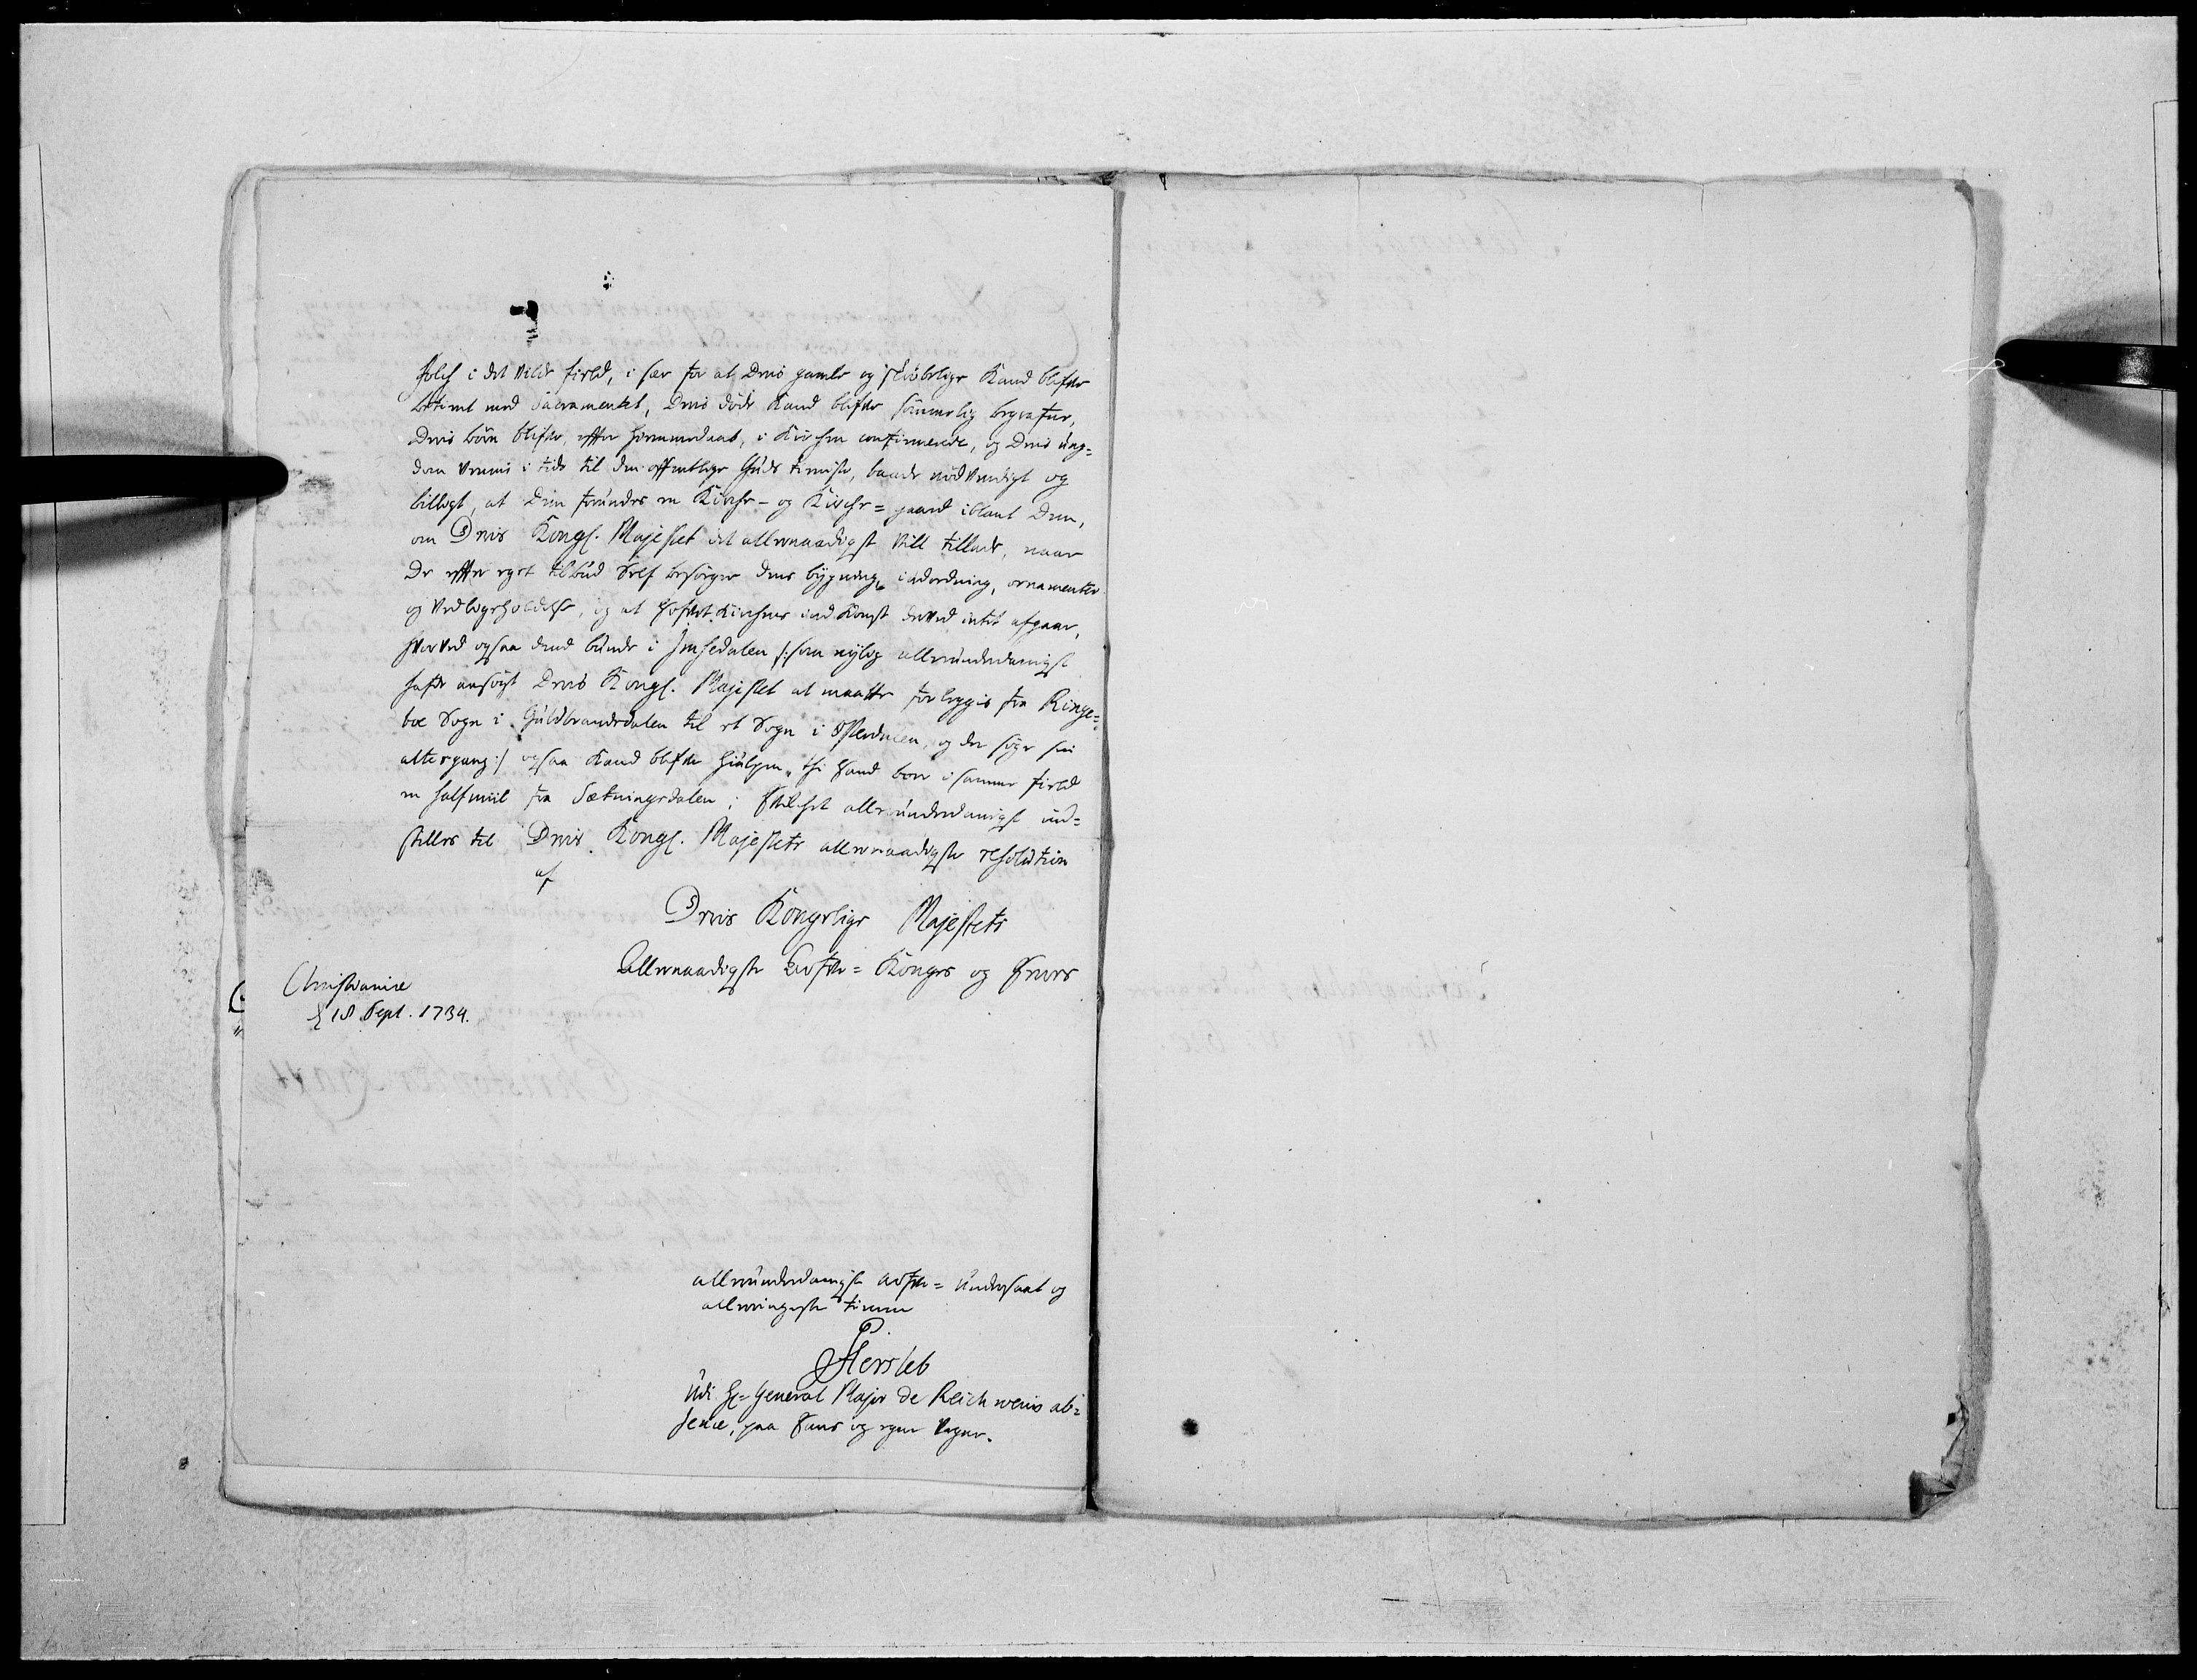 folch i det vilde field, i sær for at Deris gamle og skröbelige Kand blifve
betient med Sacramentet, Deris döde Kand blifve sömmelig begrafne,
Deris börn blifve, efter forordn., i Kirchen confirmerede, og Deris ung=
dom vennis i tide til den offentlige Guds tieniste, baade nödvendigt og
billigt, at Dem forundes en Kirche- og Kirche=gaard iblant Dem,
om Deris Kongl. Majestet det allernaadigst vill tillade, naar
De efter eget tilbud Self besörger dens bÿgning, indordning, ornamenter
og vedligeholdelse, og at Hofvet Kirchens ind Komst derved intet afgaar,
hvorved ogsaa dend bunde i Imsedalen /: som nÿlig allerunderdanigst
hafde ansögt Deris Kongl. Majestet at maatte forleggis fra Ringe=
boe Sogn i Guldbrandsdalen til et Sogn i Österdalen, og der söge sin
altergang :/ ogsaa Kand blifve hiulpen, thi Hand boer i samme field
en half miil fra Sætningsdalen; hvilchet allerunderdanigst ind=
stilles til Deris Kongl. Majestets allernaadigste resolution
af
Deris Kongelige Majestets
Allernaadigste Arfve=Konges og Herres
Christianiæ
d 18 Sept. 1734.
allerunderdanigste arfve=undersaat og
allerringeste tiener
P. Hersleb
Udi Hr General Major de Reichweins ab=
sence, paa Hans og egne Vegne.